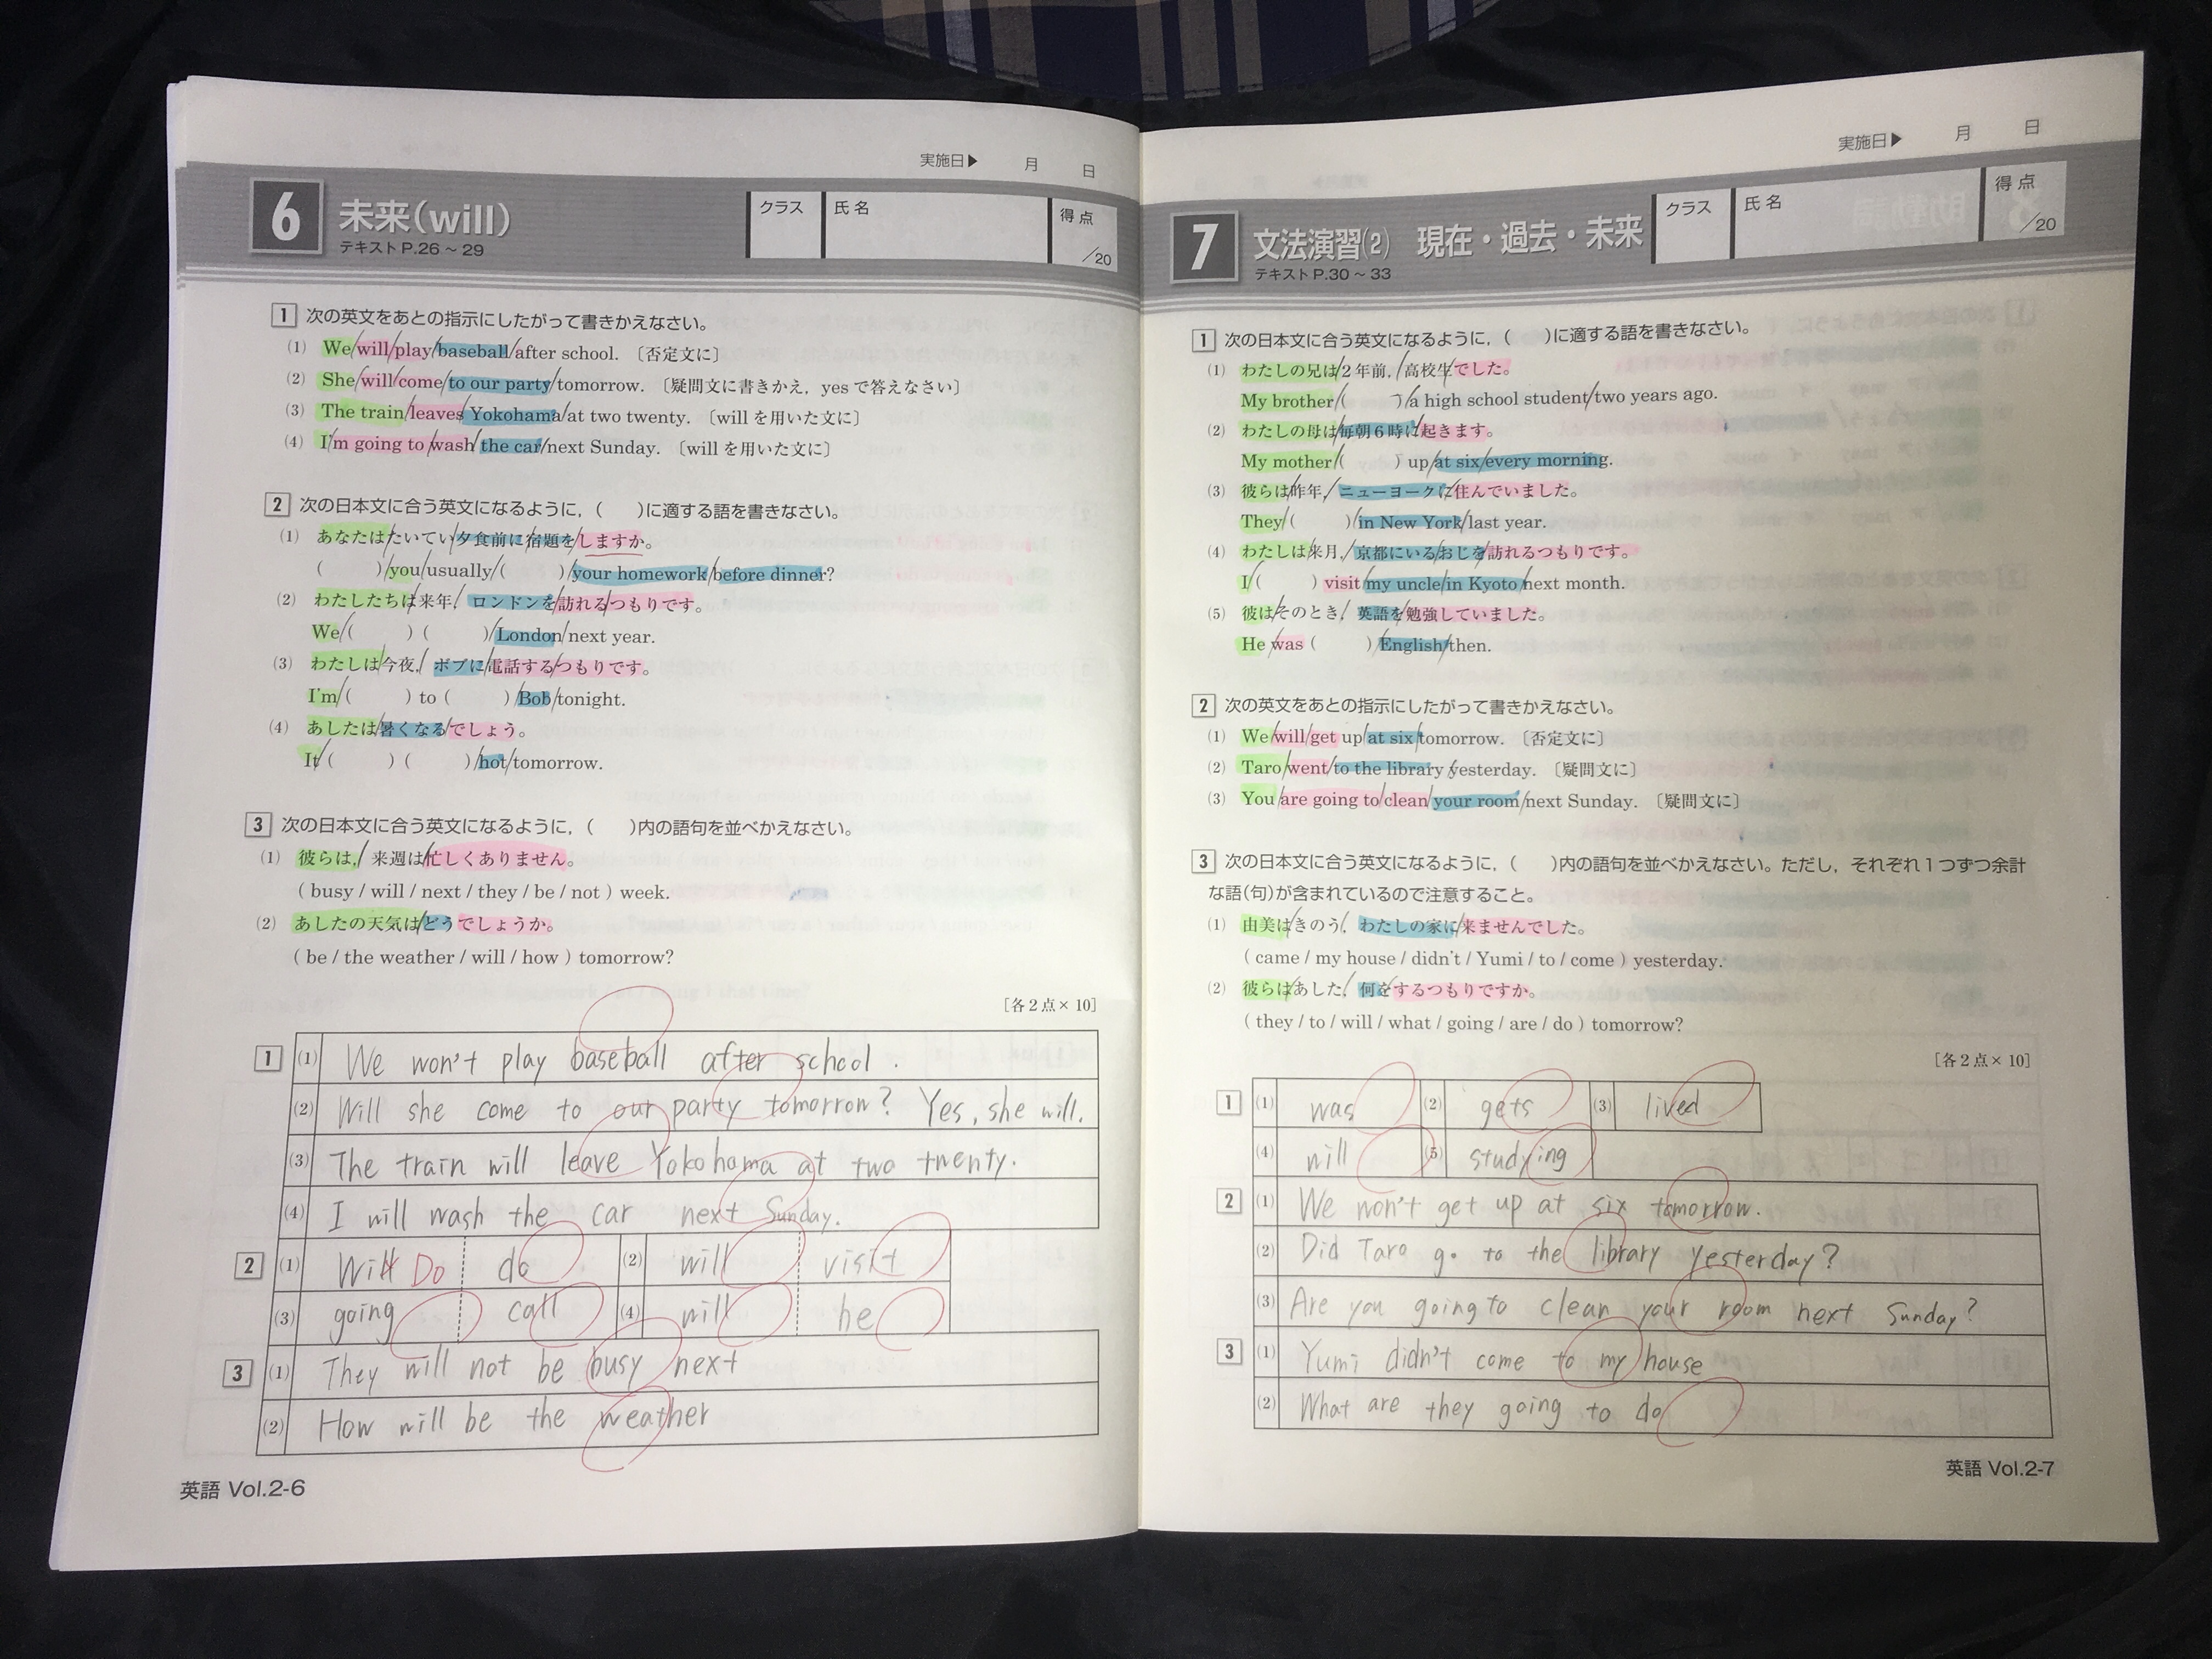 実施日▶ 月 日
6 未来(will)
テキストP.26～29
クラス 氏名 得点 /20
1 次の英文をあとの指示にしたがって書きかえなさい。
(1) We/will/play/baseball/after school. 〔否定文に〕
(2) She/will/come/to our party/tomorrow. 〔疑問文に書きかえ，yesで答えなさい〕
(3) The train/leaves/Yokohama/at two twenty. 〔willを用いた文に〕
(4) I'm going to/wash/the car/next Sunday. 〔willを用いた文に〕
2 次の日本文に合う英文になるように，( )に適する語を書きなさい。
(1) あなたは/たいてい/夕食前に/宿題を/しますか。
( )/you/usually/( )/your homework/before dinner?
(2) わたしたちは/来年，/ロンドンを/訪れる/つもりです。
We/( ) ( )/London/next year.
(3) わたしは/今夜，/ボブに/電話する/つもりです。
I'm/( ) to ( )/Bob/tonight.
(4) あしたは/暑くなる/でしょう。
It/( ) ( )/hot/tomorrow.
3 次の日本文に合う英文になるように，( )内の語句を並べかえなさい。
(1) 彼らは，/来週は/忙しくありません。
( busy / will / next / they / be / not ) week.
(2) あしたの天気は/どうでしょうか。
( be / the weather / will / how ) tomorrow?
［各2点×10］
1 (1) We won't play baseball after school.
(2) Will she come to our party tomorrow? Yes, she will.
(3) The train will leave Yokohama at two twenty.
(4) I will wash the car next Sunday.
2 (1) Will Do do (2) will visit
(3) going call (4) will be
3 (1) They will not be busy next
(2) How will be the weather
英語 Vol.2-6
実施日▶ 月 日
7 文法演習(2) 現在・過去・未来
テキストP.30～33
クラス 氏名 得点 /20
1 次の日本文に合う英文になるように，( )に適する語を書きなさい。
(1) わたしの兄は/2年前，/高校生/でした。
My brother/( )/a high school student/two years ago.
(2) わたしの母は/毎朝6時に/起きます。
My mother/( ) up/at six/every morning.
(3) 彼らは/昨年，/ニューヨークに/住んでいました。
They/( )/in New York/last year.
(4) わたしは/来月，/京都にいる/おじを/訪れるつもりです。
I/( ) visit/my uncle/in Kyoto/next month.
(5) 彼は/そのとき/，英語を/勉強していました。
He/was ( )/English/then.
2 次の英文をあとの指示にしたがって書きかえなさい。
(1) We/will/get up/at six/tomorrow. 〔否定文に〕
(2) Taro/went/to the library/yesterday. 〔疑問文に〕
(3) You/are going to/clean/your room/next Sunday. 〔疑問文に〕
3 次の日本文に合う英文になるように，( )内の語句を並べかえなさい。ただし，それぞれ1つずつ余計
な語(句)が含まれているので注意すること。
(1) 由美は/きのう，わたしの家に/来ませんでした。
( came / my house / didn't / Yumi / to / come ) yesterday.
(2) 彼らは/あした，/何を/するつもりですか。
( they / to / will / what / going / are / do ) tomorrow?
［各2点×10］
1 (1) was (2) gets (3) lived
(4) will (5) studying
2 (1) We won't get up at six tomorrow.
(2) Did Taro go to the library yesterday?
(3) Are you going to clean your room next Sunday?
3 (1) Yumi didn't come to my house
(2) What are they going to do
英語 Vol.2-7